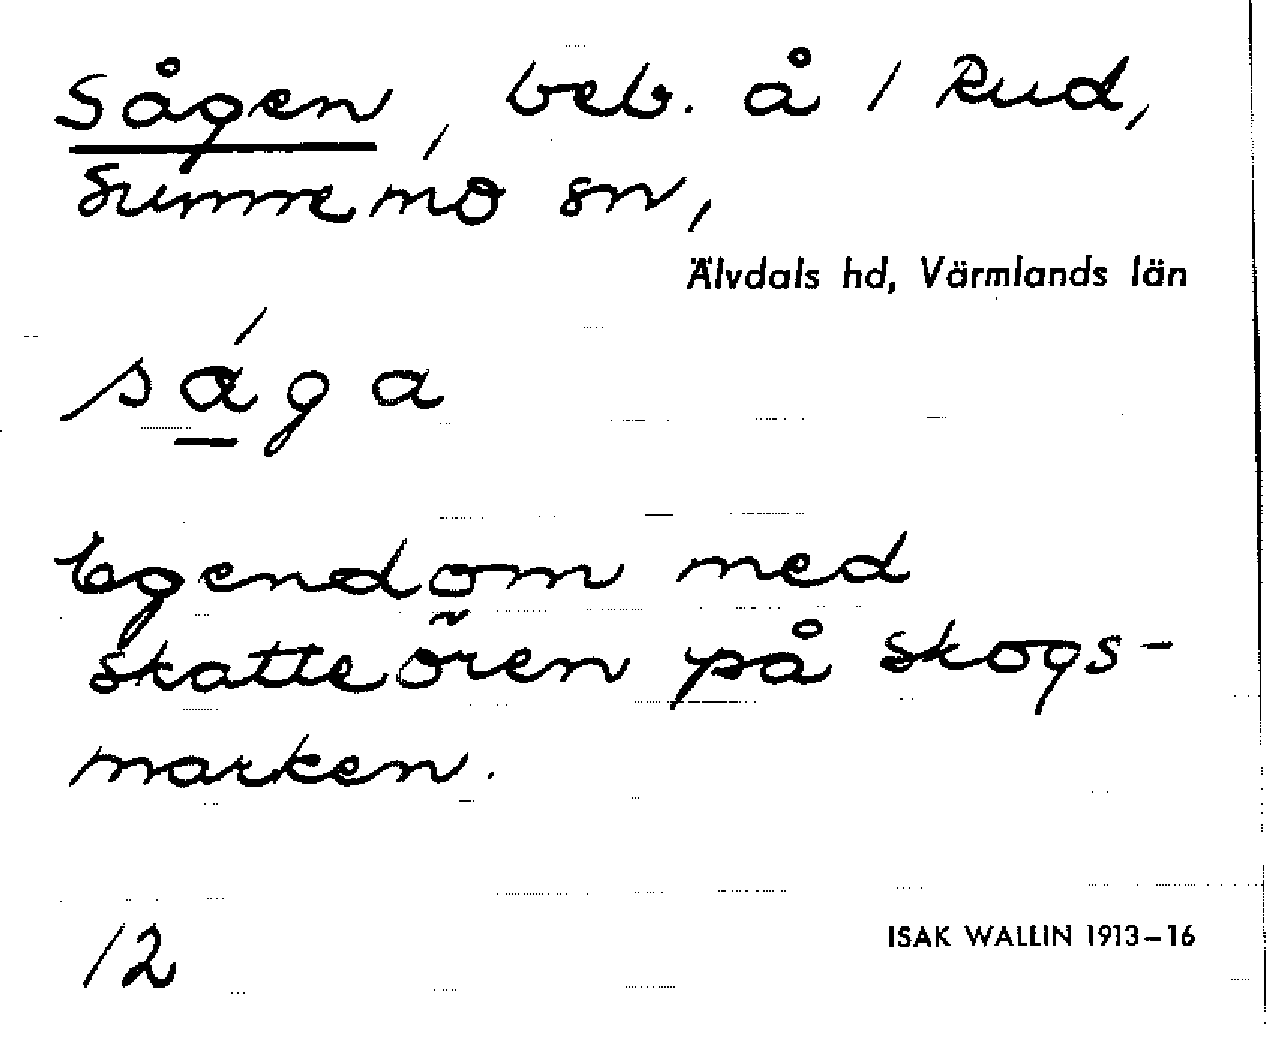 Sågen, beb. å 1 Rud,
Sunnemo sn,
Älvdals hd, Värmlands län
sága
Egendom med
skatteören på skogs-
marken.
12
ISAK WALLIN 1913–16